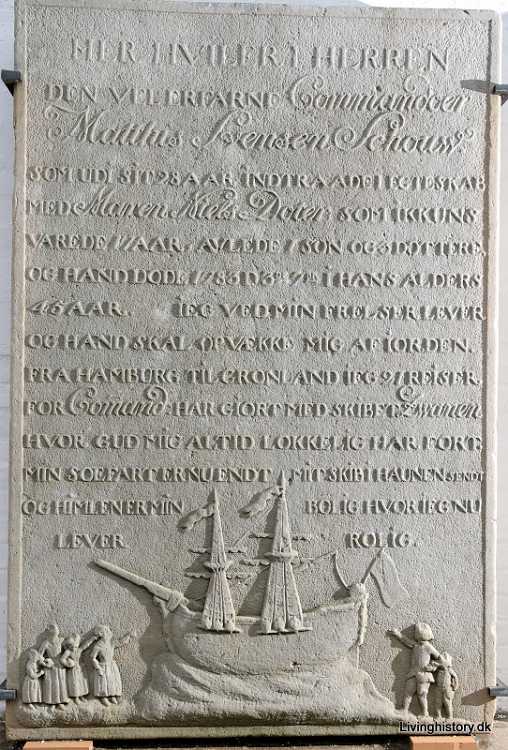 HER HVILER I HERREN
DEN VELERFARNE Commandöer
Matthis Svensen Schouw
SOM UDI SIT 28 AAR. INDTRAADE I EGTESKAB
MED Maren Niels Dotter SOM IKKUNS
VAREDE 17 AAR. AVLEDE 1 SON OG 3 DØTTERE,
OG HAND DØDE 1783 I HANS ALDERS
45 AAR. IEG VED MIN FRELSER LEVER
OG HAND SKAL OPVÆKKE MIG AF IORDEN.
FRA HAMBURG TIL GRØNLAND IEG 21 REISER
FOR Comand: HAR GIORT MED SKIBET. Zwanen
HVOR GUD MIG ALTID LØKKELIG HAR FØRT
MIN SOEFART ER NU ENDT MIT SKIB I HAUNEN SENDT
OG HIMLEN ER MIN BOLIG HVOR IEG NU
LEVER ROLIG.
Livinghistory.dk